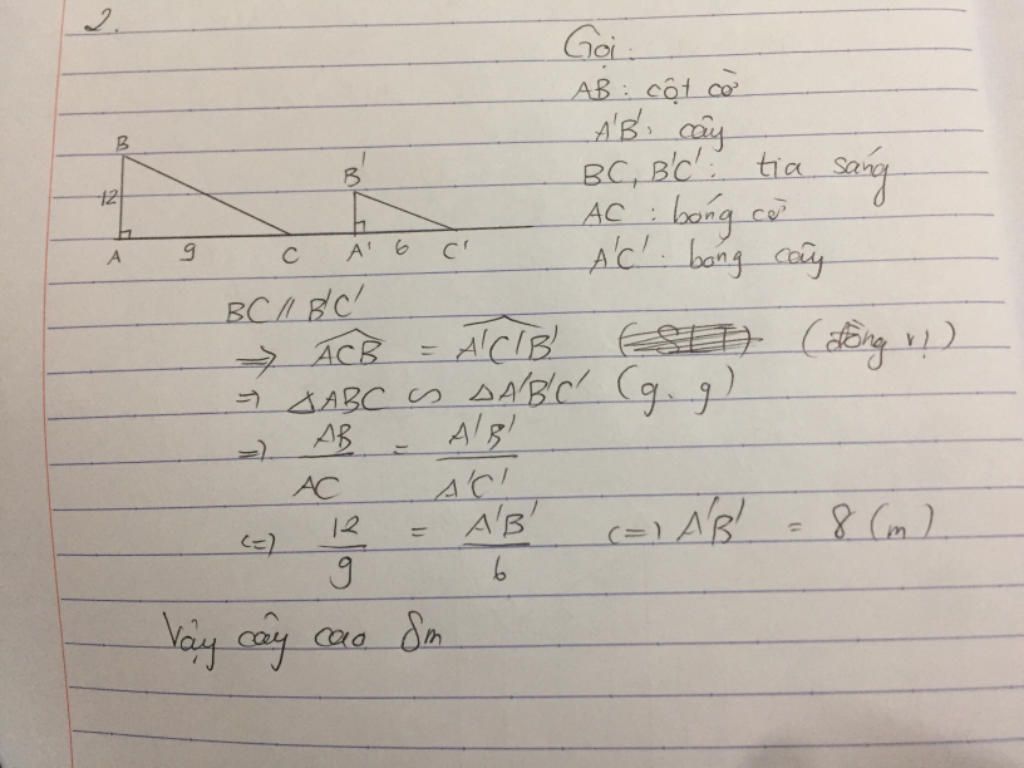 2.
Gọi:
AB: cột cờ
A'B': cây
BC, B'C': tia sáng
AC: bóng cờ
A'C': bóng cây
B
12
A
9
C
B'
A'
6
C'
BC // B'C'
=> ACB = A'C'B' (SLT) (đồng vị)
=> ΔABC ∽ ΔA'B'C' (g.g)
=> AB/AC = A'B'/A'C'
<=> 12/9 = A'B'/6 <=> A'B' = 8 (m)
Vậy cây cao 8m